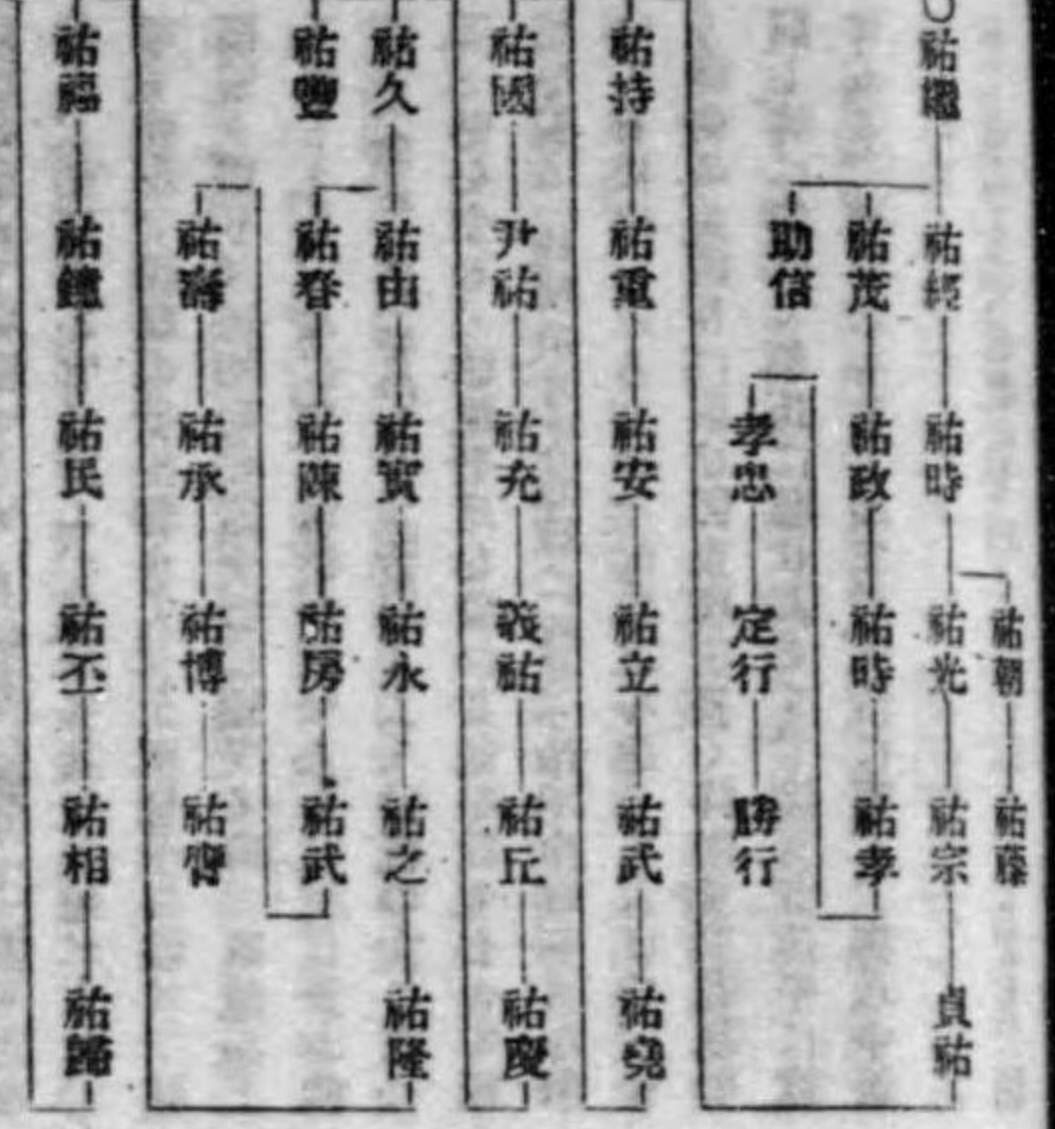 ○祐繼
祐經
祐時
祐朝
祐藤
祐光
祐宗
貞祐
祐茂
祐政
祐時
祐孝
助信
孝忠
定行
勝行
祐持
祐重
祐安
祐立
祐武
祐堯
祐國
尹祐
祐充
義祐
祐丘
祐慶
祐久
祐由
祐實
祐永
祐之
祐隆
祐豐
祐春
祐陳
祐房
祐武
祐壽
祐承
祐博
祐福
祐鐘
祐民
祐丕
祐相
祐歸